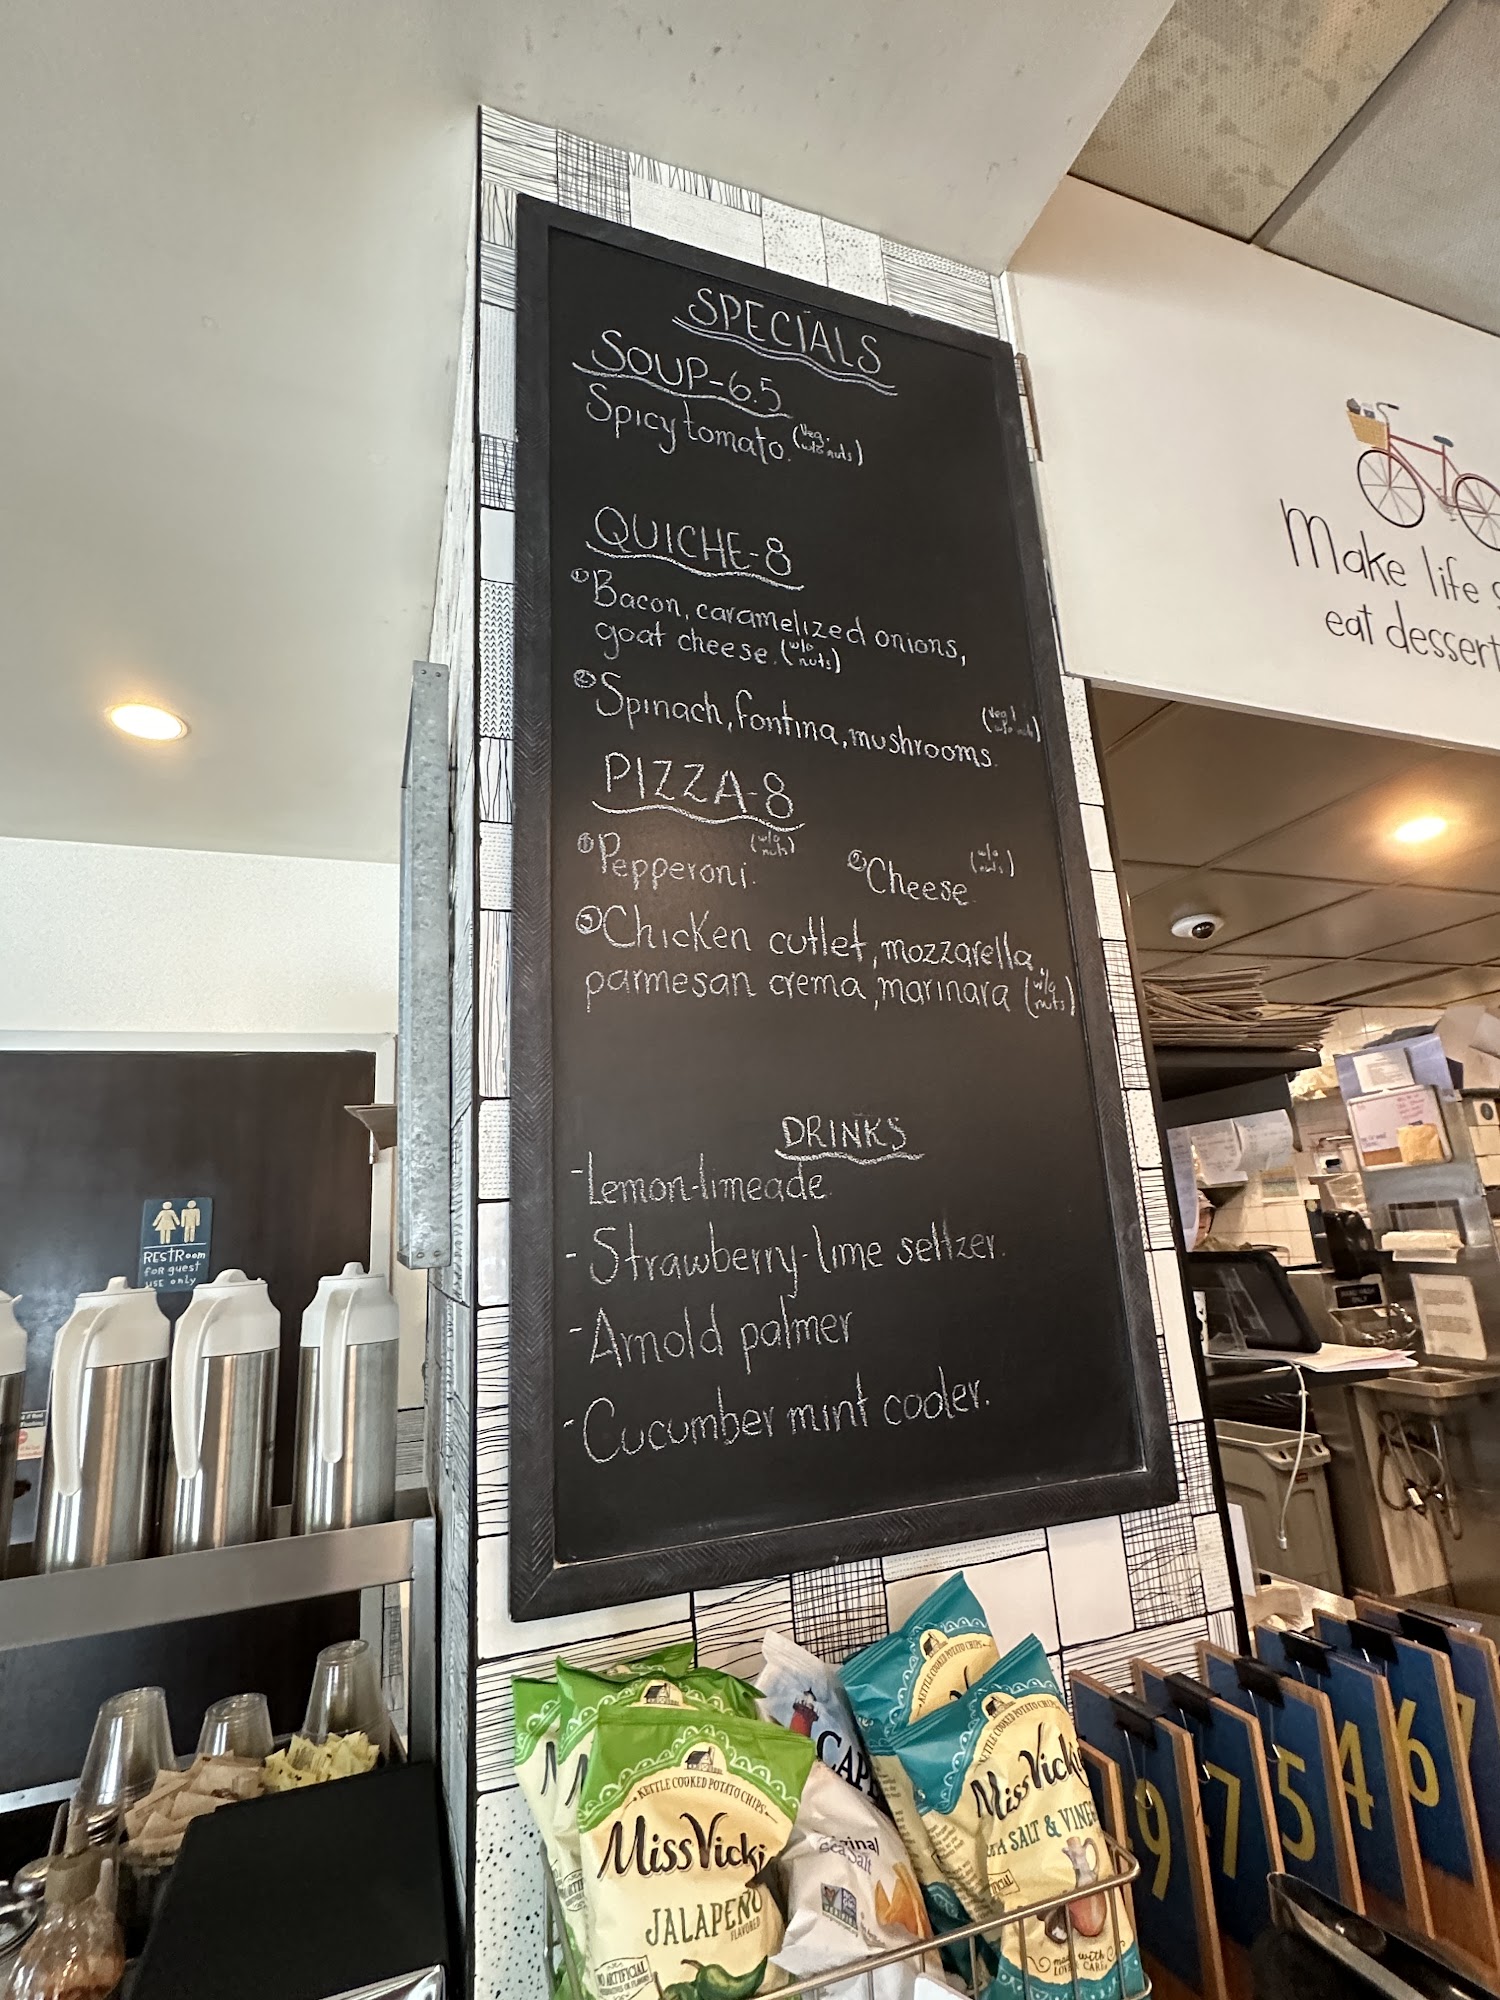 SPECIALS
SOUP-6.5
Spicy tomato. (Veg. w/o nuts)
QUICHE-8
① Bacon, caramelized onions,
goat cheese. (w/o nuts)
② Spinach, fontina, mushrooms. (Veg
PIZZA-8
① Pepperoni. (w/o nuts)
② Cheese (w/o nuts)
③ Chicken cutlet, mozzarella,
parmesan crema, marinara (w/o nuts)
DRINKS
-Lemon-limeade
- Strawberry-lime seltzer.
-Arnold palmer
-Cucumber mint cooler.
Make life
eat dessert
RESTRoom
FOR guest
USE only
KETTLE COOKED POTATO CHIPS
Miss Vicki
JALAPEÑO
FLAVORED
CAPE
Sea Salt
KETTLE COOKED POTATO CHIPS
KETTLE COOKED POTATO CHIPS
Miss Vicki
SALT & VINE
made with
LOVE & CARE
9
7
5
4
6
7